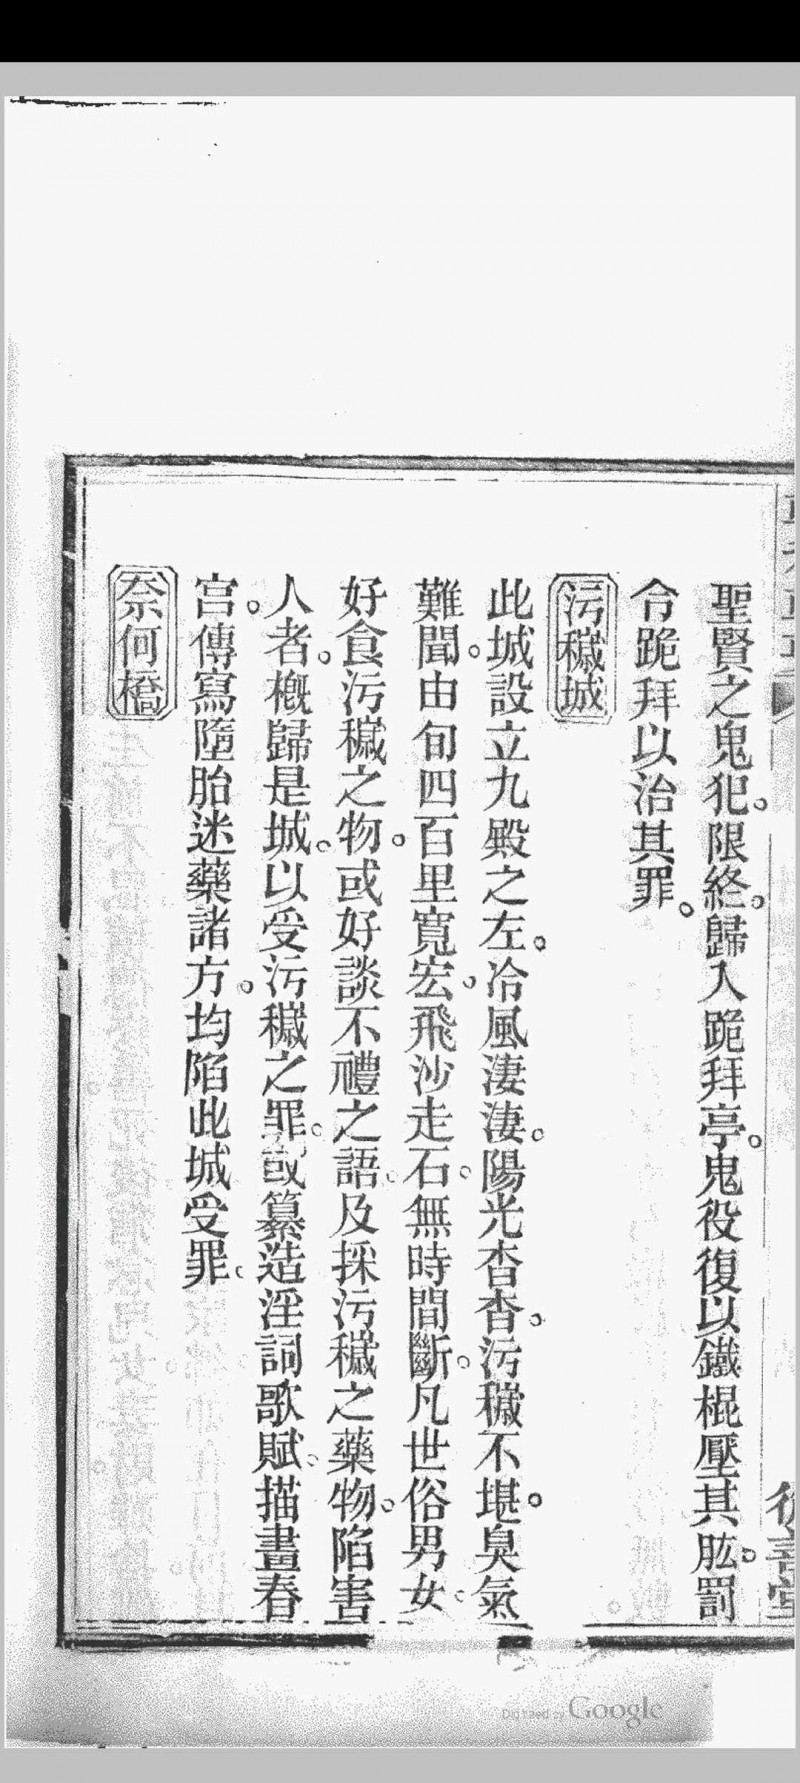 聖賢之鬼犯。限終。歸入跪拜亭。鬼役復以鐵棍壓其肱。罰
令跪拜以治其罪。
污穢城
此城設立九殿之左。冷風淒淒。陽光杳杳。污穢不堪。臭氣
難聞。由旬四百里寬宏。飛沙走石。無時間斷。凡世俗男女。
好食污穢之物。或好談不禮之語。及採污穢之藥物。陷害
人者。槪歸是城。以受污穢之罪。或纂造淫詞歌賦。描畫春
宮。傳寫墮胎迷藥諸方。均陷此城受罪。
奈何橋
Digitized by Google